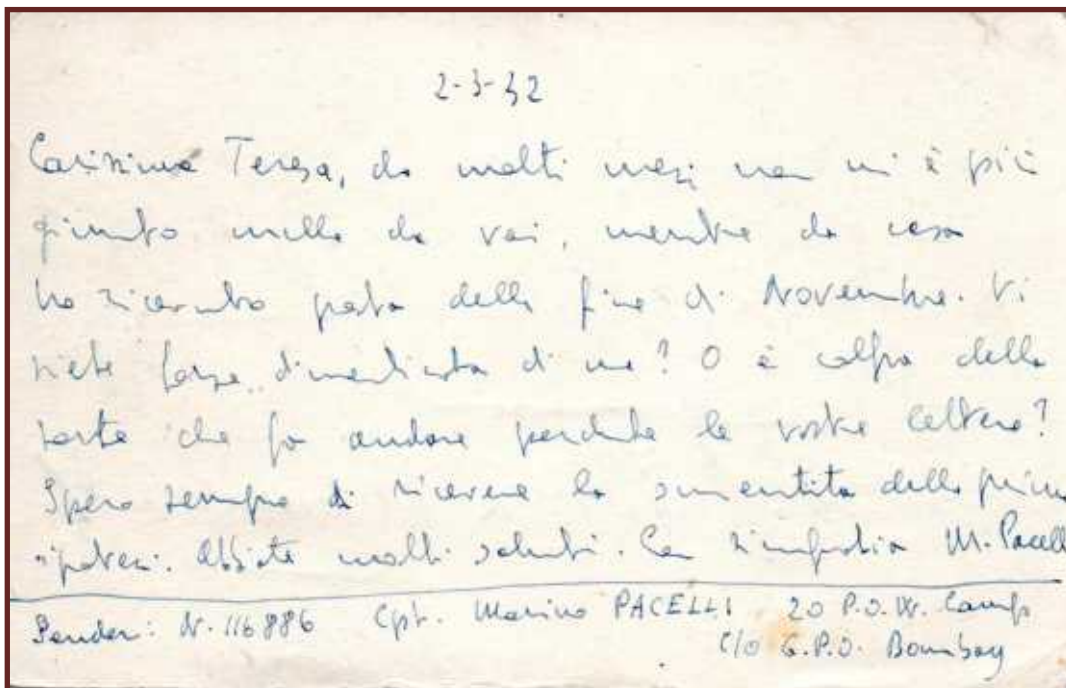 2-3-42
Carissima Teresa, da molti mesi non mi è più
giunto nulla da voi, mentre da casa
ho ricevuto posta della fine di Novembre. Vi
siete forse dimenticata di me? O è colpa della
sorte che fa andare perdute le vostre lettere?
Spero sempre di ricevere la smentita della prima
ipotesi. Abbiate molti saluti. Con simpatia M. Pacelli
Sender: N. 116886 Cpt. Marino PACELLI 20 P.O.W. Camp
C/o G.P.O. Bombay